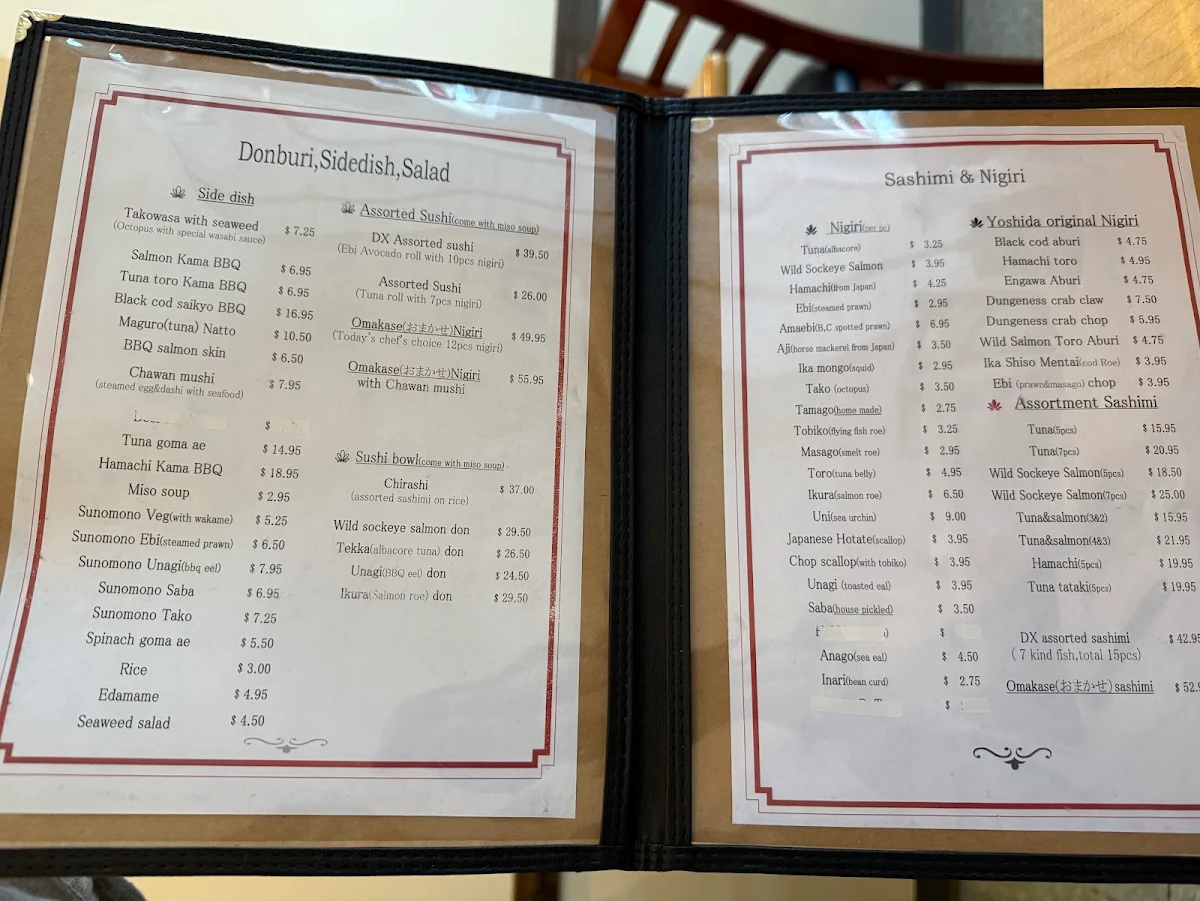 Donburi,Sidedish,Salad
Side dish
Takowasa with seaweed $ 7.25
(Octopus with special wasabi sauce)
Salmon Kama BBQ $ 6.95
Tuna toro Kama BBQ $ 6.95
Black cod saikyo BBQ $ 16.95
Maguro(tuna) Natto $ 10.50
BBQ salmon skin $ 6.50
Chawan mushi $ 7.95
(steamed egg&dashi with seafood)
$
Tuna goma ae $ 14.95
Hamachi Kama BBQ $ 18.95
Miso soup $ 2.95
Sunomono Veg(with wakame) $ 5.25
Sunomono Ebi(steamed prawn) $ 6.50
Sunomono Unagi(bbq eel) $ 7.95
Sunomono Saba $ 6.95
Sunomono Tako $ 7.25
Spinach goma ae $ 5.50
Rice $ 3.00
Edamame $ 4.95
Seaweed salad $ 4.50
Assorted Sushi(come with miso soup)
DX Assorted sushi $ 39.50
(Ebi Avocado roll with 10pcs nigiri)
Assorted Sushi $ 26.00
(Tuna roll with 7pcs nigiri)
Omakase(おまかせ)Nigiri $ 49.95
(Today's chef's choice 12pcs nigiri)
Omakase(おまかせ)Nigiri $ 55.95
with Chawan mushi
Sushi bowl(come with miso soup)
Chirashi $ 37.00
(assorted sashimi on rice)
Wild sockeye salmon don $ 29.50
Tekka(albacore tuna) don $ 26.50
Unagi(BBQ eel) don $ 24.50
Ikura(Salmon roe) don $ 29.50
Sashimi & Nigiri
Nigiri(per pc)
Tuna(albacore) $ 3.25
Wild Sockeye Salmon $ 3.95
Hamachi(from Japan) $ 4.25
Ebi(steamed prawn) $ 2.95
Amaebi(B,C spotted prawn) $ 6.95
Aji(horse mackerel from Japan) $ 3.50
Ika mongo(squid) $ 2.95
Tako (octopus) $ 3.50
Tamago(home made) $ 2.75
Tobiko(flying fish roe) $ 3.25
Masago(smelt roe) $ 2.95
Toro(tuna belly) $ 4.95
Ikura(salmon roe) $ 6.50
Uni(sea urchin) $ 9.00
Japanese Hotate(scallop) $ 3.95
Chop scallop(with tobiko) $ 3.95
Unagi (toasted eal) $ 3.95
Saba(house pickled) $ 3.50
$
Anago(sea eal) $ 4.50
Inari(bean curd) $ 2.75
$
Yoshida original Nigiri
Black cod aburi $ 4.75
Hamachi toro $ 4.95
Engawa Aburi $ 4.75
Dungeness crab claw $ 7.50
Dungeness crab chop $ 5.95
Wild Salmon Toro Aburi $ 4.75
Ika Shiso Mentai(cod Roe) $ 3.95
Ebi (prawn&masago) chop $ 3.95
Assortment Sashimi
Tuna(5pcs) $ 15.95
Tuna(7pcs) $ 20.95
Wild Sockeye Salmon(5pcs) $ 18.50
Wild Sockeye Salmon(7pcs) $ 25.00
Tuna&salmon(3&2) $ 15.95
Tuna&salmon(4&3) $ 21.95
Hamachi(5pcs) $ 19.95
Tuna tataki(5pcs) $ 19.95
DX assorted sashimi $ 42.95
( 7 kind fish,total 15pcs)
Omakase(おまかせ)sashimi $ 52.9